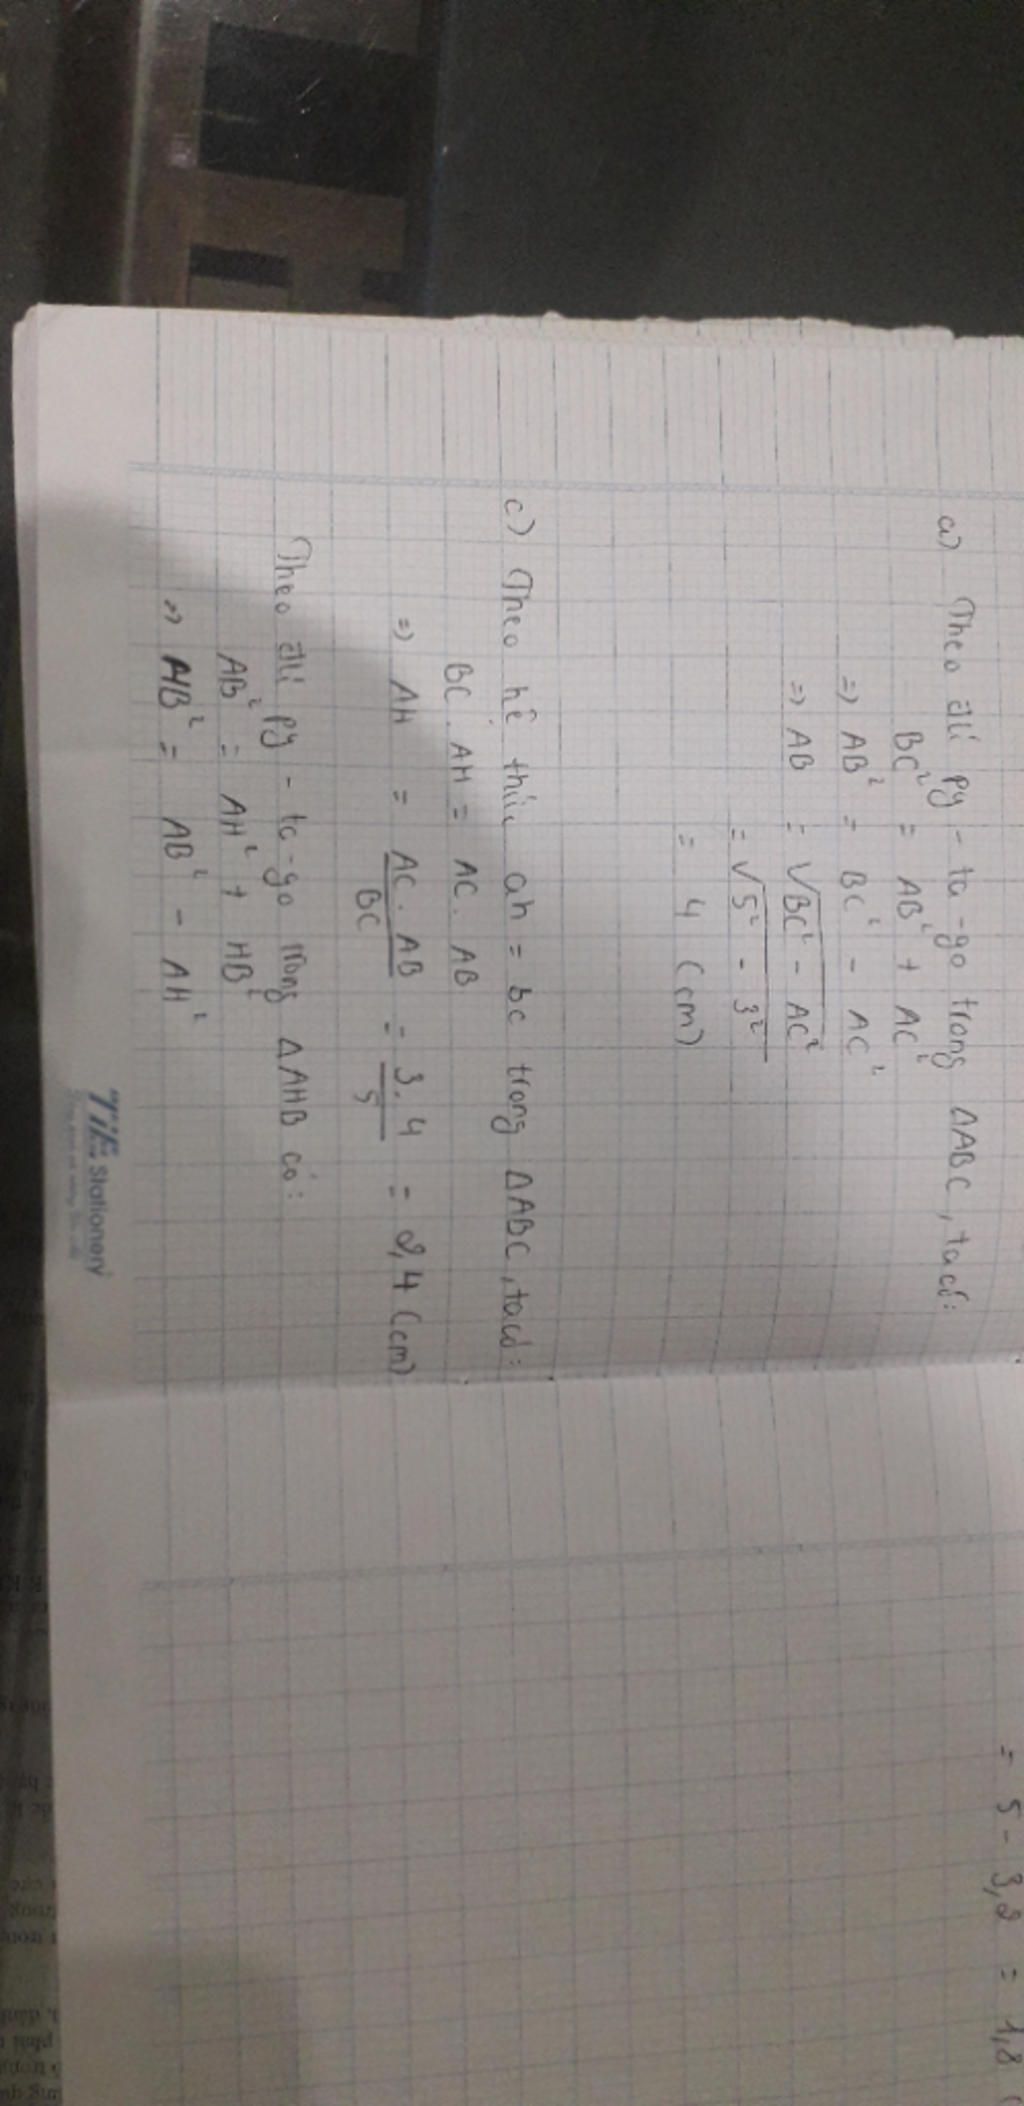 a) Theo đlí py-ta-go trong ΔABC, ta có:
BC² = AB² + AC²
=> AB² = BC² - AC²
=> AB = √BC² - AC²
= √5² - 3²
= 4 (cm)
c) Theo hệ thức ah = bc trong ΔABC, ta có:
BC . AH = AC . AB
=> AH = AC . AB / BC = 3.4 / 5 = 2,4 (cm)
Theo đlí py-ta-go trong ΔAHB có:
AB² = AH² + HB²
=> HB² = AB² - AH²
TiE Stationery
= 5 - 3,2 = 1,8 (